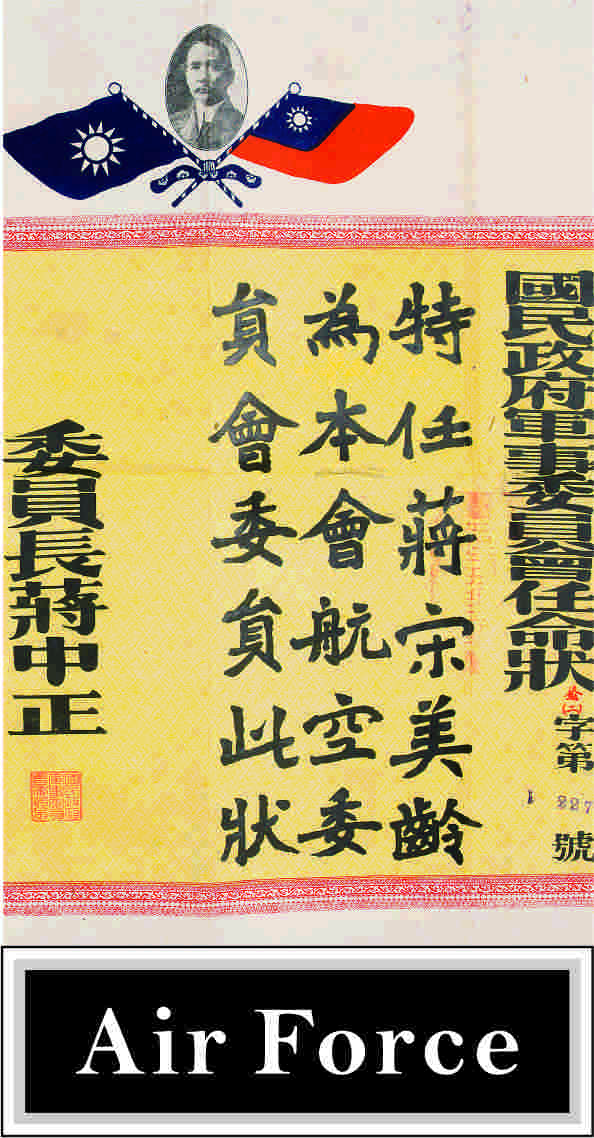 國民政府軍事委員會任命狀
字第
227
號
特任蔣宋美齡
為本會航空委
員會委員此狀
委員長蔣中正
Air Force